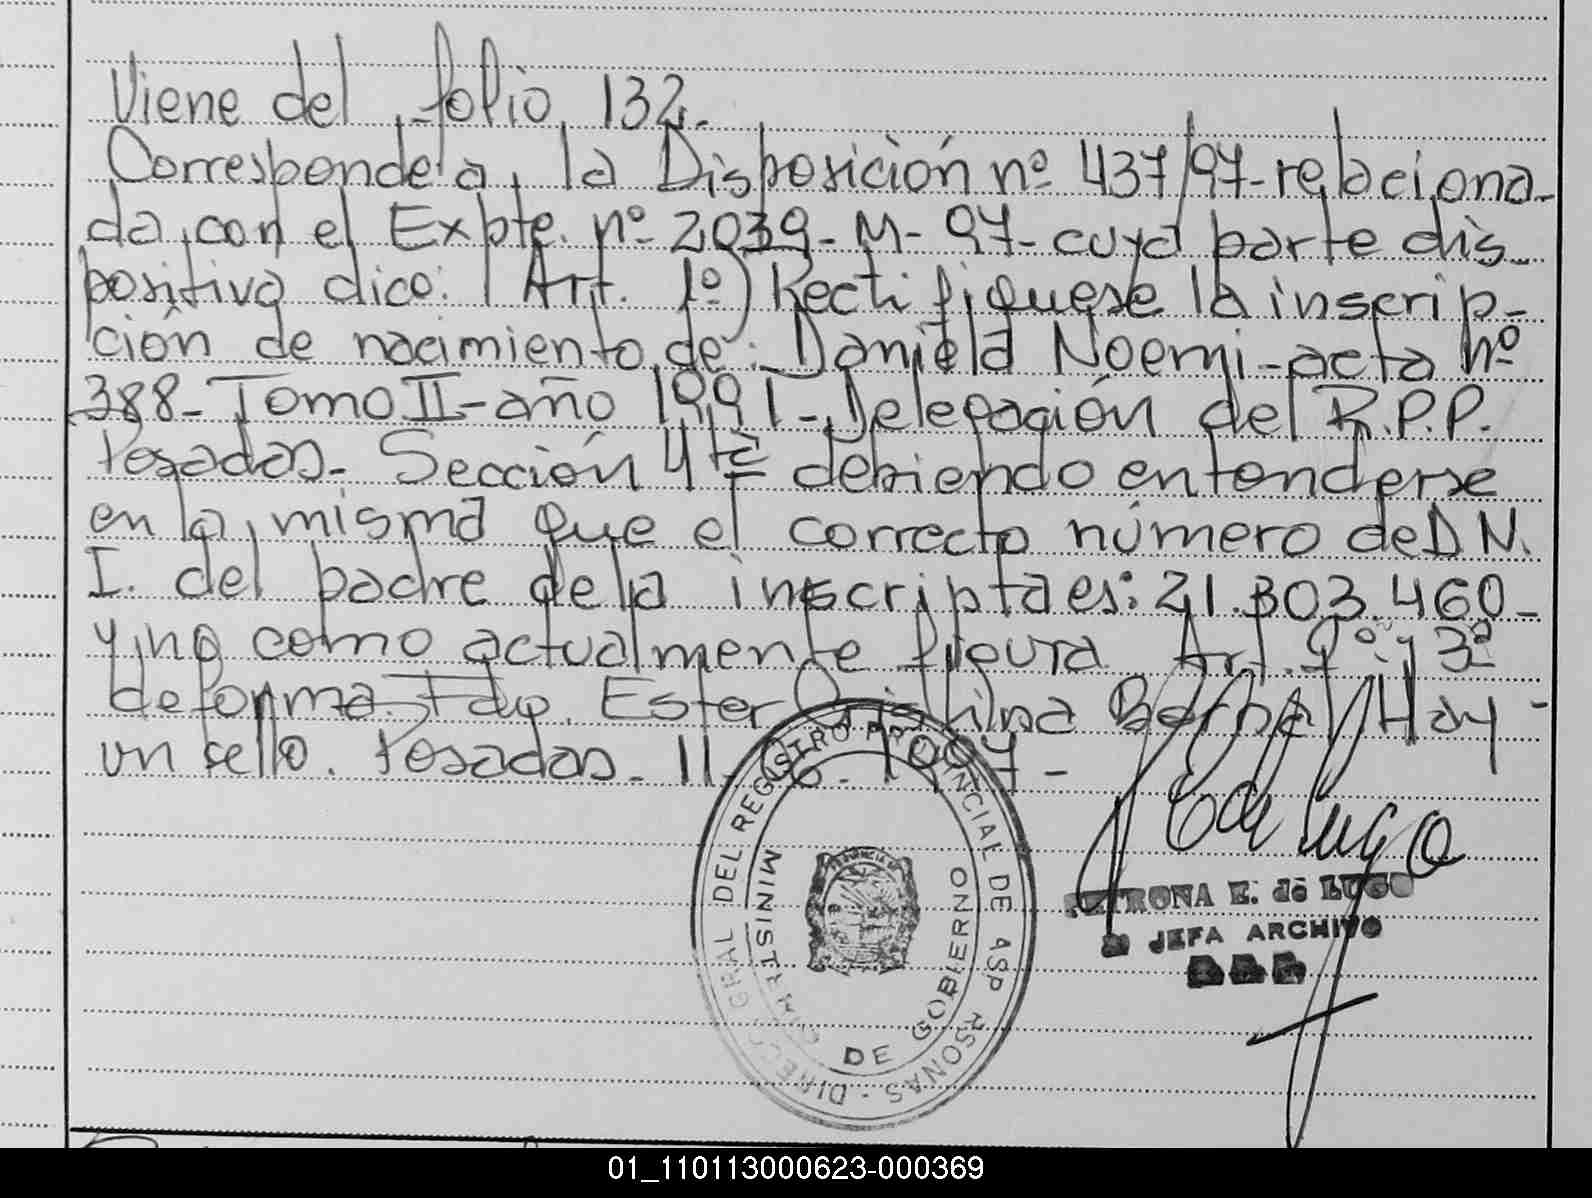 Viene del folio 132.
Corresponde a la Disposición nº 437/97-relaciona-
da con el Expte. nº 2039-M-97-cuya parte dis-
positiva dice: Art. 1º) Rectifiquese la inscrip-
ción de nacimiento de: Daniela Noemi-acta nº
388-Tomo II-año 1991-Delegación del R.P.P.
Posadas-Sección 4ta debiendo entenderse
en la misma que el correcto número de D N.
I. del padre de la inscripta es: 21.303.460-
y no como actualmente figura Art. 2º y 3º
de forma. Fdo. Ester Cristina Hay-
un sello. Posadas-11-06-1997-
DIRECC GRAL DEL REGISTRO PROVINCIAL DE LAS PERSONAS-
MINISTERIO DE GOBIERNO
PETRONA E. de LUGO
JEFA ARCHIVO
01_110113000623-000369